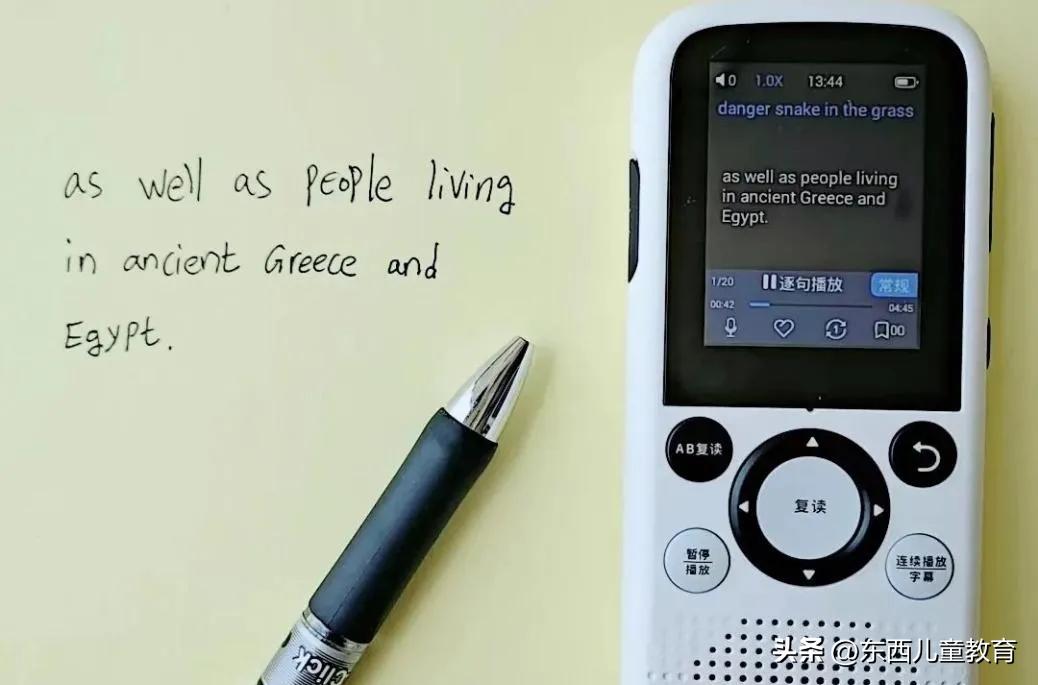 as well as people living
in ancient Greece and
Egypt.
0 1.0X 13:44
danger snake in the grass
as well as people living
in ancient Greece and
Egypt.
1/20 逐句播放 常规
00:42 04:45
1 00
AB复读
复读
暂停
播放
连续播放
字幕
click
头条 @东西儿童教育